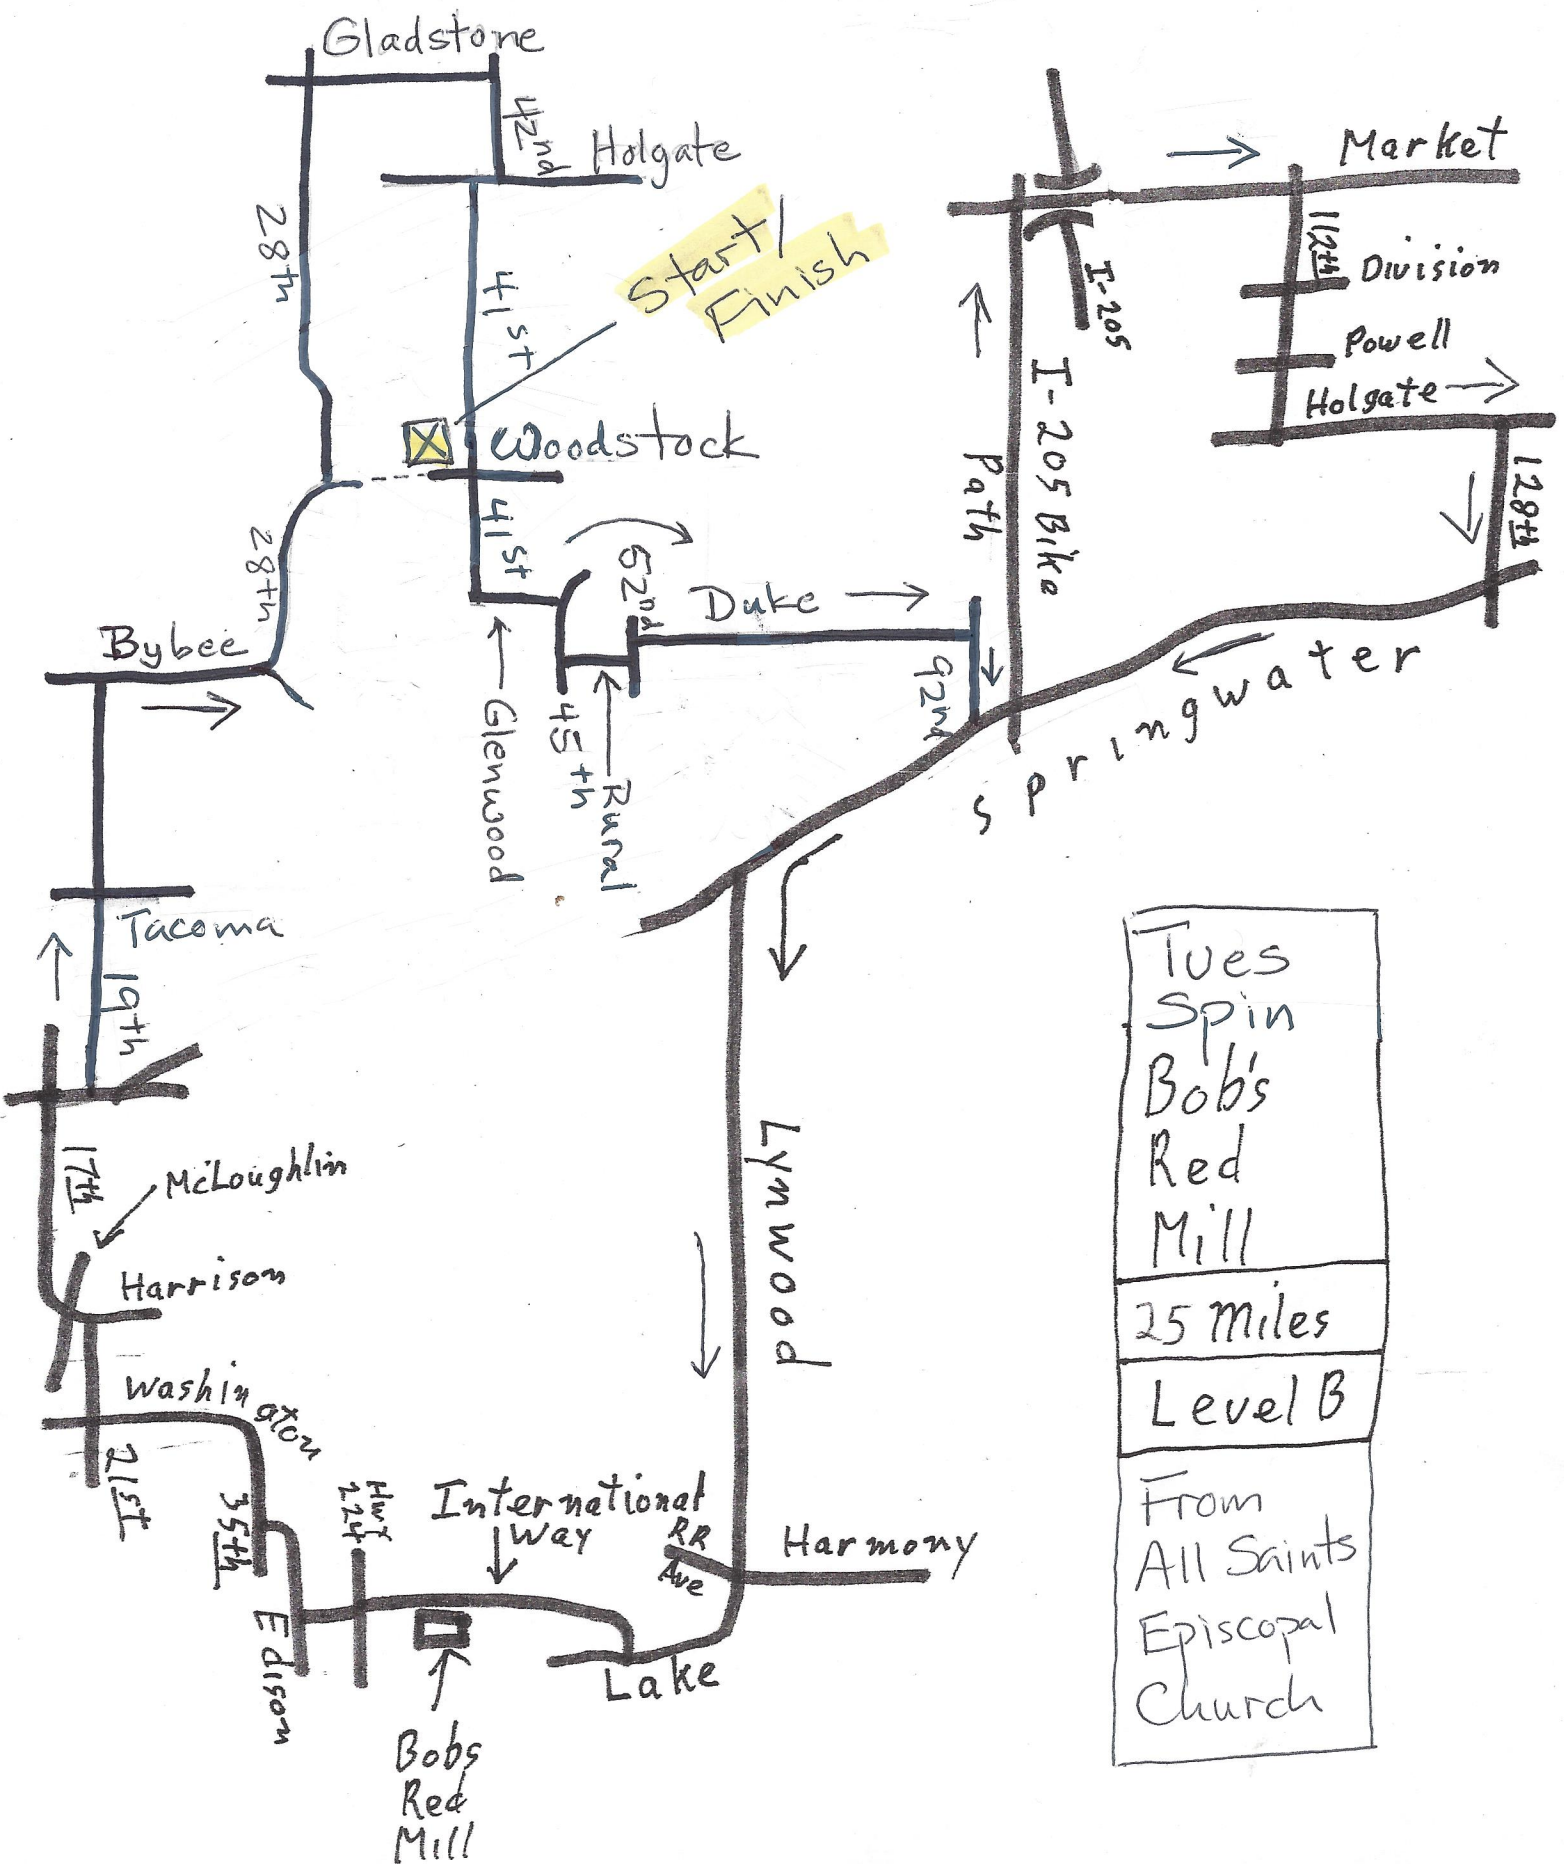 Gladstone
42nd
Holgate
28th
41st
Start/
Finish
Woodstock
41st
28th
Bybee
52nd
Duke
92nd
Glenwood
45th
Rural
Market
112th
Division
Powell
Holgate
128th
I-205
I-205 Bike
Path
Springwater
Tacoma
19th
17th
McLoughlin
Harrison
Washington
21st
35th
Edison
Hwy
224
International
Way
RR
Ave
Harmony
Lynwood
Lake
Bobs
Red
Mill
Tues
Spin
Bob's
Red
Mill
25 Miles
Level B
From
All Saints
Episcopal
Church